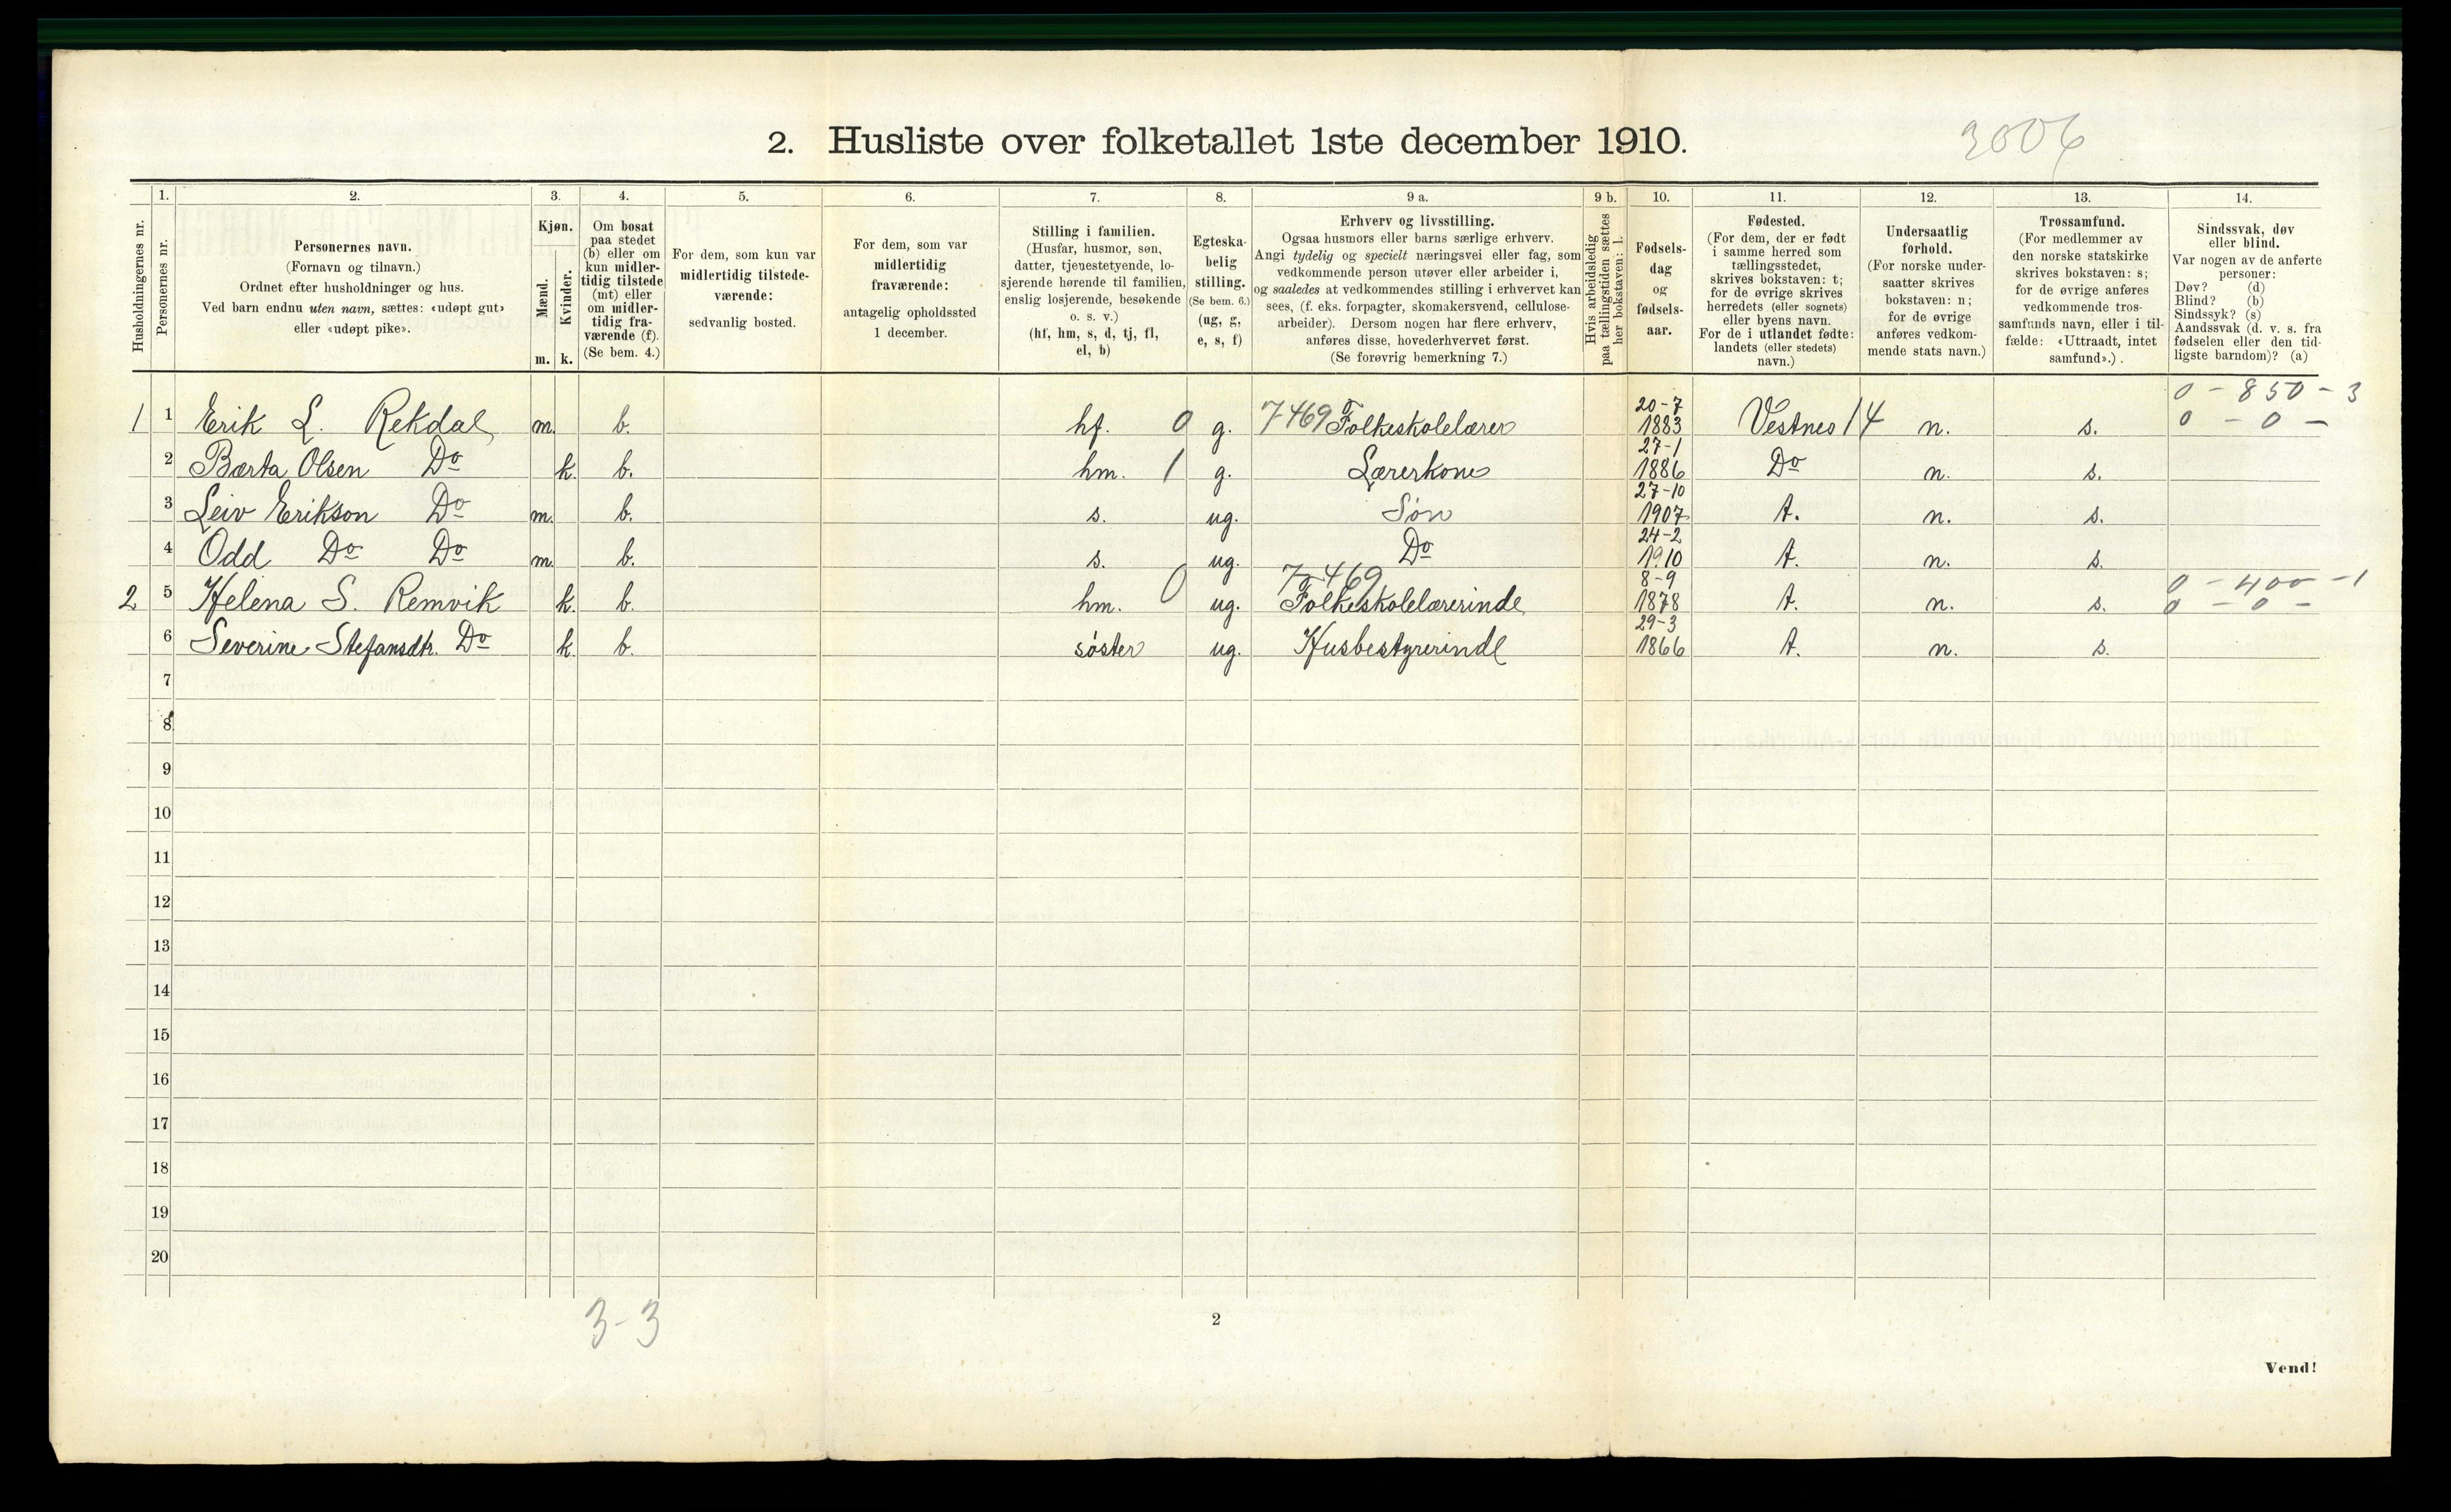 2. Husliste over folketallet 1ste december 1910.
3006
Husholdningernes nr.
1.
Personernes nr.
2.
Personernes navn.
(Fornavn og tilnavn.)
Ordnet efter husholdninger og hus.
Ved barn endnu uten navn, sættes: «udøpt gut»
eller «udøpt pike».
3.
Kjøn.
Mænd.
Kvinder.
m. k.
4.
Om bosat
paa stedet
(b) eller om
kun midler-
tidig tilstede
(mt) eller
om midler-
tidig fra-
værende (f).
(Se bem. 4.)
5.
For dem, som kun var
midlertidig tilstede-
værende:
sedvanlig bosted.
6.
For dem, som var
midlertidig
fraværende:
antagelig opholdssted
1 december.
7.
Stilling i familien.
(Husfar, husmor, søn,
datter, tjenestetyende, lo-
sjerende hørende til familien,
enslig losjerende, besøkende
o. s. v.)
(hf, hm, s, d, tj, fl,
el, b)
8.
Egteska-
belig
stilling.
(Se bem. 6.)
(ug, g,
e, s, f)
9 a.
Erhverv og livsstilling.
Ogsaa husmors eller barns særlige erhverv.
Angi tydelig og specielt næringsvei eller fag, som
vedkommende person utøver eller arbeider i,
og saaledes at vedkommendes stilling i erhvervet kan
sees, (f. eks. forpagter, skomakersvend, cellulose-
arbeider). Dersom nogen har flere erhverv,
anføres disse, hovederhvervet først.
(Se forøvrig bemerkning 7.)
9 b.
Hvis arbeidsledig
paa tællingstiden sættes
her bokstaven: l.
10.
Fødsels-
dag
og
fødsels-
aar.
11.
Fødested.
(For dem, der er født
i samme herred som
tællingsstedet,
skrives bokstaven: t;
for de øvrige skrives
herredets (eller sognets)
eller byens navn.
For de i utlandet fødte:
landets (eller stedets)
navn.)
12.
Undersaatlig
forhold.
(For norske under-
saatter skrives
bokstaven: n;
for de øvrige
anføres vedkom-
mende stats navn.)
13.
Trossamfund.
(For medlemmer av
den norske statskirke
skrives bokstaven: s;
for de øvrige anføres
vedkommende tros-
samfunds navn, eller i til-
fælde: «Uttraadt, intet
samfund».)
14.
Sindssvak, døv
eller blind.
Var nogen av de anførte
personer:
Døv? (d)
Blind? (b)
Sindssyk? (s)
Aandssvak (d. v. s. fra
fødselen eller den tid-
ligste barndom)? (a)
0 - 850 - 3
1 1 Erik L. Rekdal m. b. hf. 0 g. 7469 Folkeskolelærer 20-7 1883 Vestnes 14 n. s. 0 - 0 -
2 Bærta Olsen Do k. b. hm. 1 g. Lærerkone 27-1 1886 Do n. s.
3 Leiv Erikson Do m. b. s. ug. Søn 27-10 1907 t. n. s.
4 Odd Do Do m. b. s. ug. Do 24-2 1910 t. n. s.
7469 0 - 400 - 1
2 5 Helena S. Remvik k. b. hm. 0 ug. Folkeskolelærerinde 8-9 1878 t. n. s. 0 - 0 -
6 Severine Stefansdtr. Do k. b. søster ug. Husbestyrerinde 29-3 1866 t. n. s.
7
8
9
10
11
12
13
14
15
16
17
18
19
20
3-3
2
Vend!